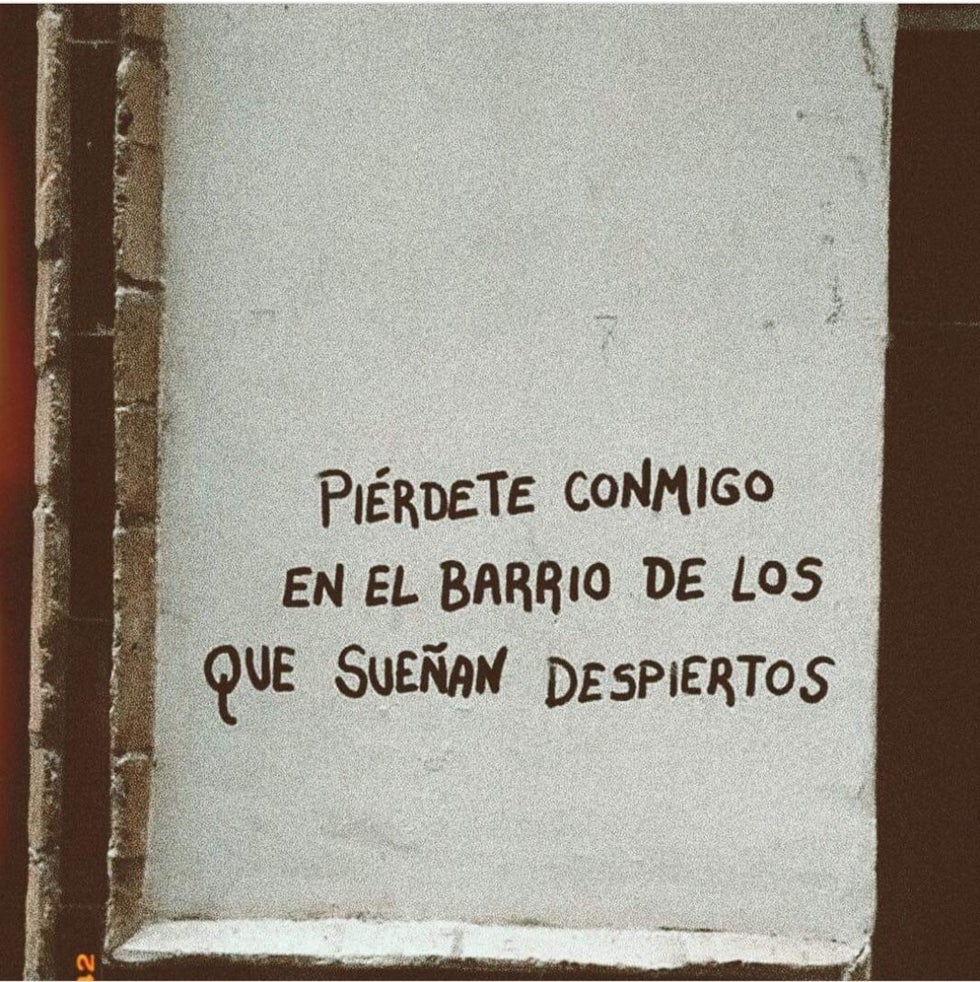 PIÉRDETE CONMIGO
EN EL BARRIO DE LOS
QUE SUEÑAN DESPIERTOS
12